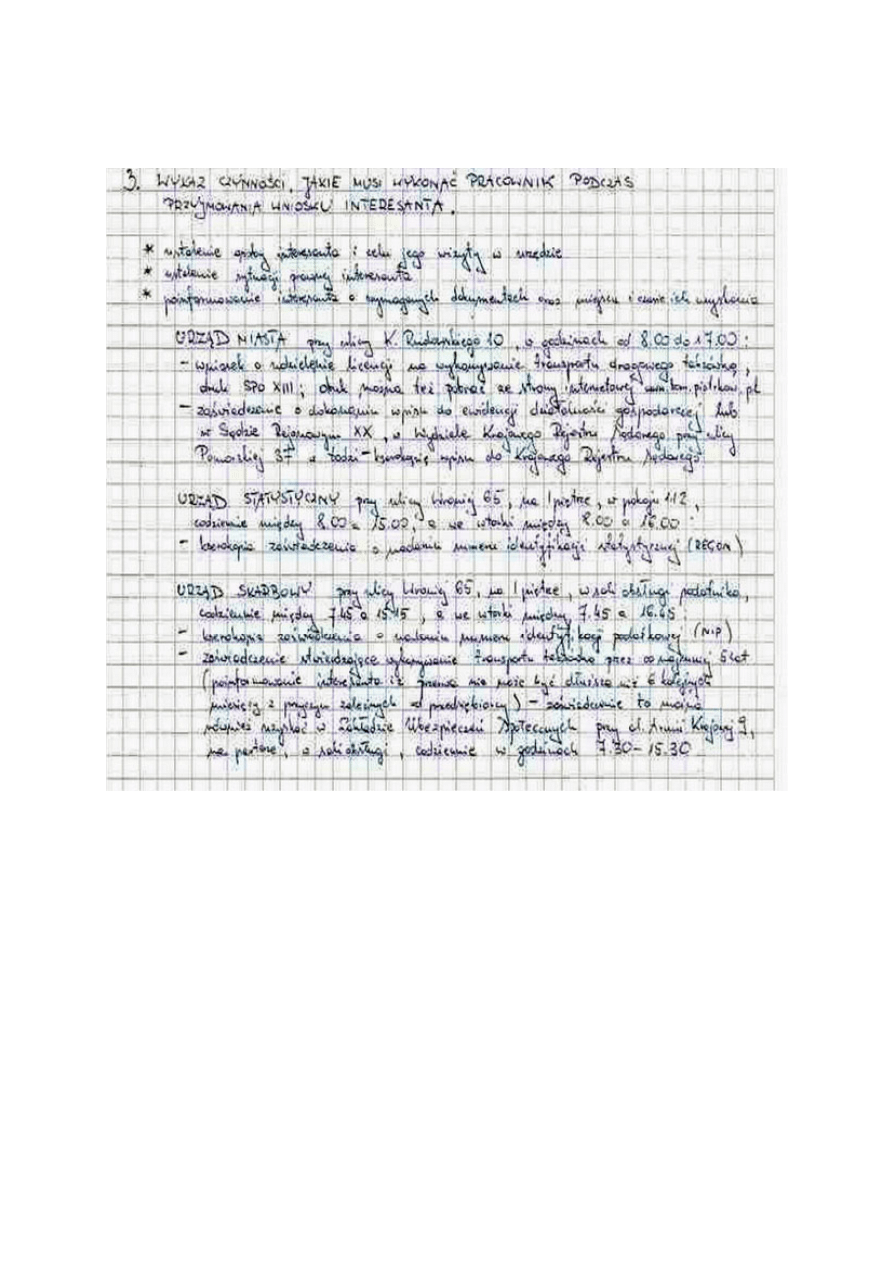 3. WYKAZ CZYNNOŚCI, JAKIE MUSI WYKONAĆ PRACOWNIK PODCZAS
PRZYJMOWANIA WNIOSKU INTERESANTA.
* ustalenie osoby interesanta i celu jego wizyty w urzędzie
* ustalenie sytuacji prawnej interesanta
* poinformowanie interesanta o wymaganych dokumentach oraz miejscu i czasie ich uzyskania
URZĄD MIASTA przy ulicy K. Rudowskiego 10, w godzinach od 8.00 do 17.00:
- wniosek o udzielenie licencji na wykonywanie transportu drogowego taksówką,
druk SPO XIII; druk można też pobrać ze strony internetowej
- zaświadczenie o dokonaniu wpisu do ewidencji działalności gospodarczej lub
w Sądzie Rejonowym XX, w Wydziale Krajowego Rejestru Sądowego przy ulicy
Pomorskiej 37 w Łodzi - kserokopię wpisu do Krajowego Rejestru Sądowego
URZĄD STATYSTYCZNY przy ulicy Wroniej 65, na I piętrze, w pokoju 112,
codziennie między 8.00 a 15.00, a we wtorki między 8.00 a 16.00:
- kserokopia zaświadczenia o nadaniu numeru identyfikacji statystycznej (REGON)
URZĄD SKARBOWY przy ulicy Wroniej 65, na I piętrze, w sali obsługi podatnika,
codziennie między 7.45 a 15.15, a we wtorki między 7.45 a 16.45:
- kserokopia zaświadczenia o nadaniu numeru identyfikacji podatkowej (NIP)
- zaświadczenie stwierdzające wykonywanie transportu taksówką przez co najmniej 5 lat
(poinformowanie interesanta iż przerwa nie może być dłuższa niż 6 kolejnych
miesięcy z przyczyn zależnych od przedsiębiorcy) - zaświadczenie to można
również uzyskać w Zakładzie Ubezpieczeń Społecznych przy al. Armii Krajowej 9,
na parterze, w sali obsługi, codziennie w godzinach 7.30 - 15.30